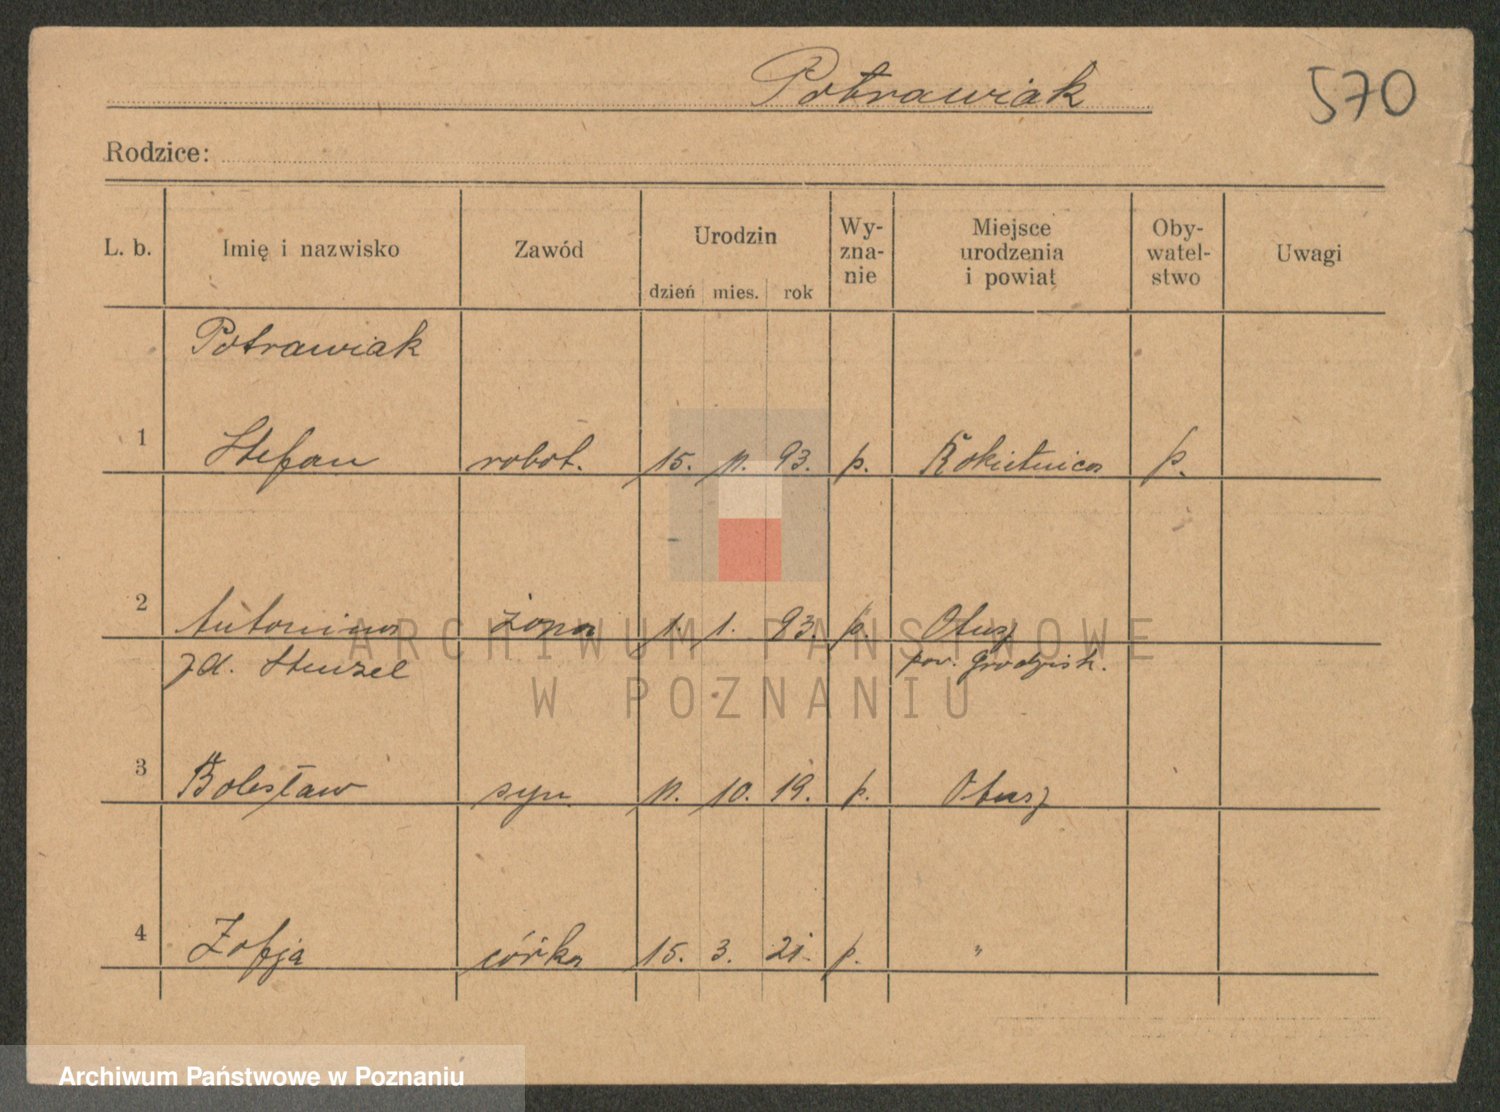 Potrawiak
570
Rodzice:
L. b. Imię i nazwisko Zawód Urodzin dzień mies. rok Wy-zna-nie Miejsce urodzenia i powiat Oby-watel-stwo Uwagi
Potrawiak
1 Stefan robot. 15. 11. 93. p. Rokietnica p.
2 Antonina żona 1. 1. 93. p. Otusz
zd. Stenzel pow. Grodzisk.
3 Bolesław syn 11. 10. 19. p. Otusz
4 Zofja córka 15. 3. 21. p. "
ARCHIWUM PAŃSTWOWE
W POZNANIU
Archiwum Państwowe w Poznaniu